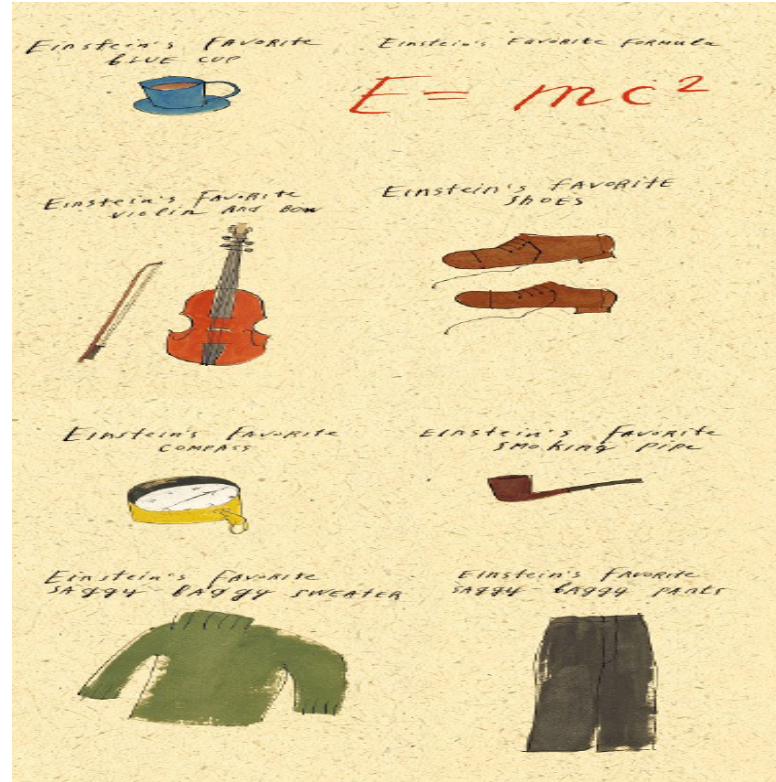 Einstein's Favorite
blue cup
Einstein's Favorite Formula
E = mc²
Einstein's Favorite
violin and bow
Einstein's Favorite
shoes
Einstein's Favorite
compass
Einstein's Favorite
smoking pipe
Einstein's Favorite
saggy-baggy sweater
Einstein's Favorite
saggy-baggy pants